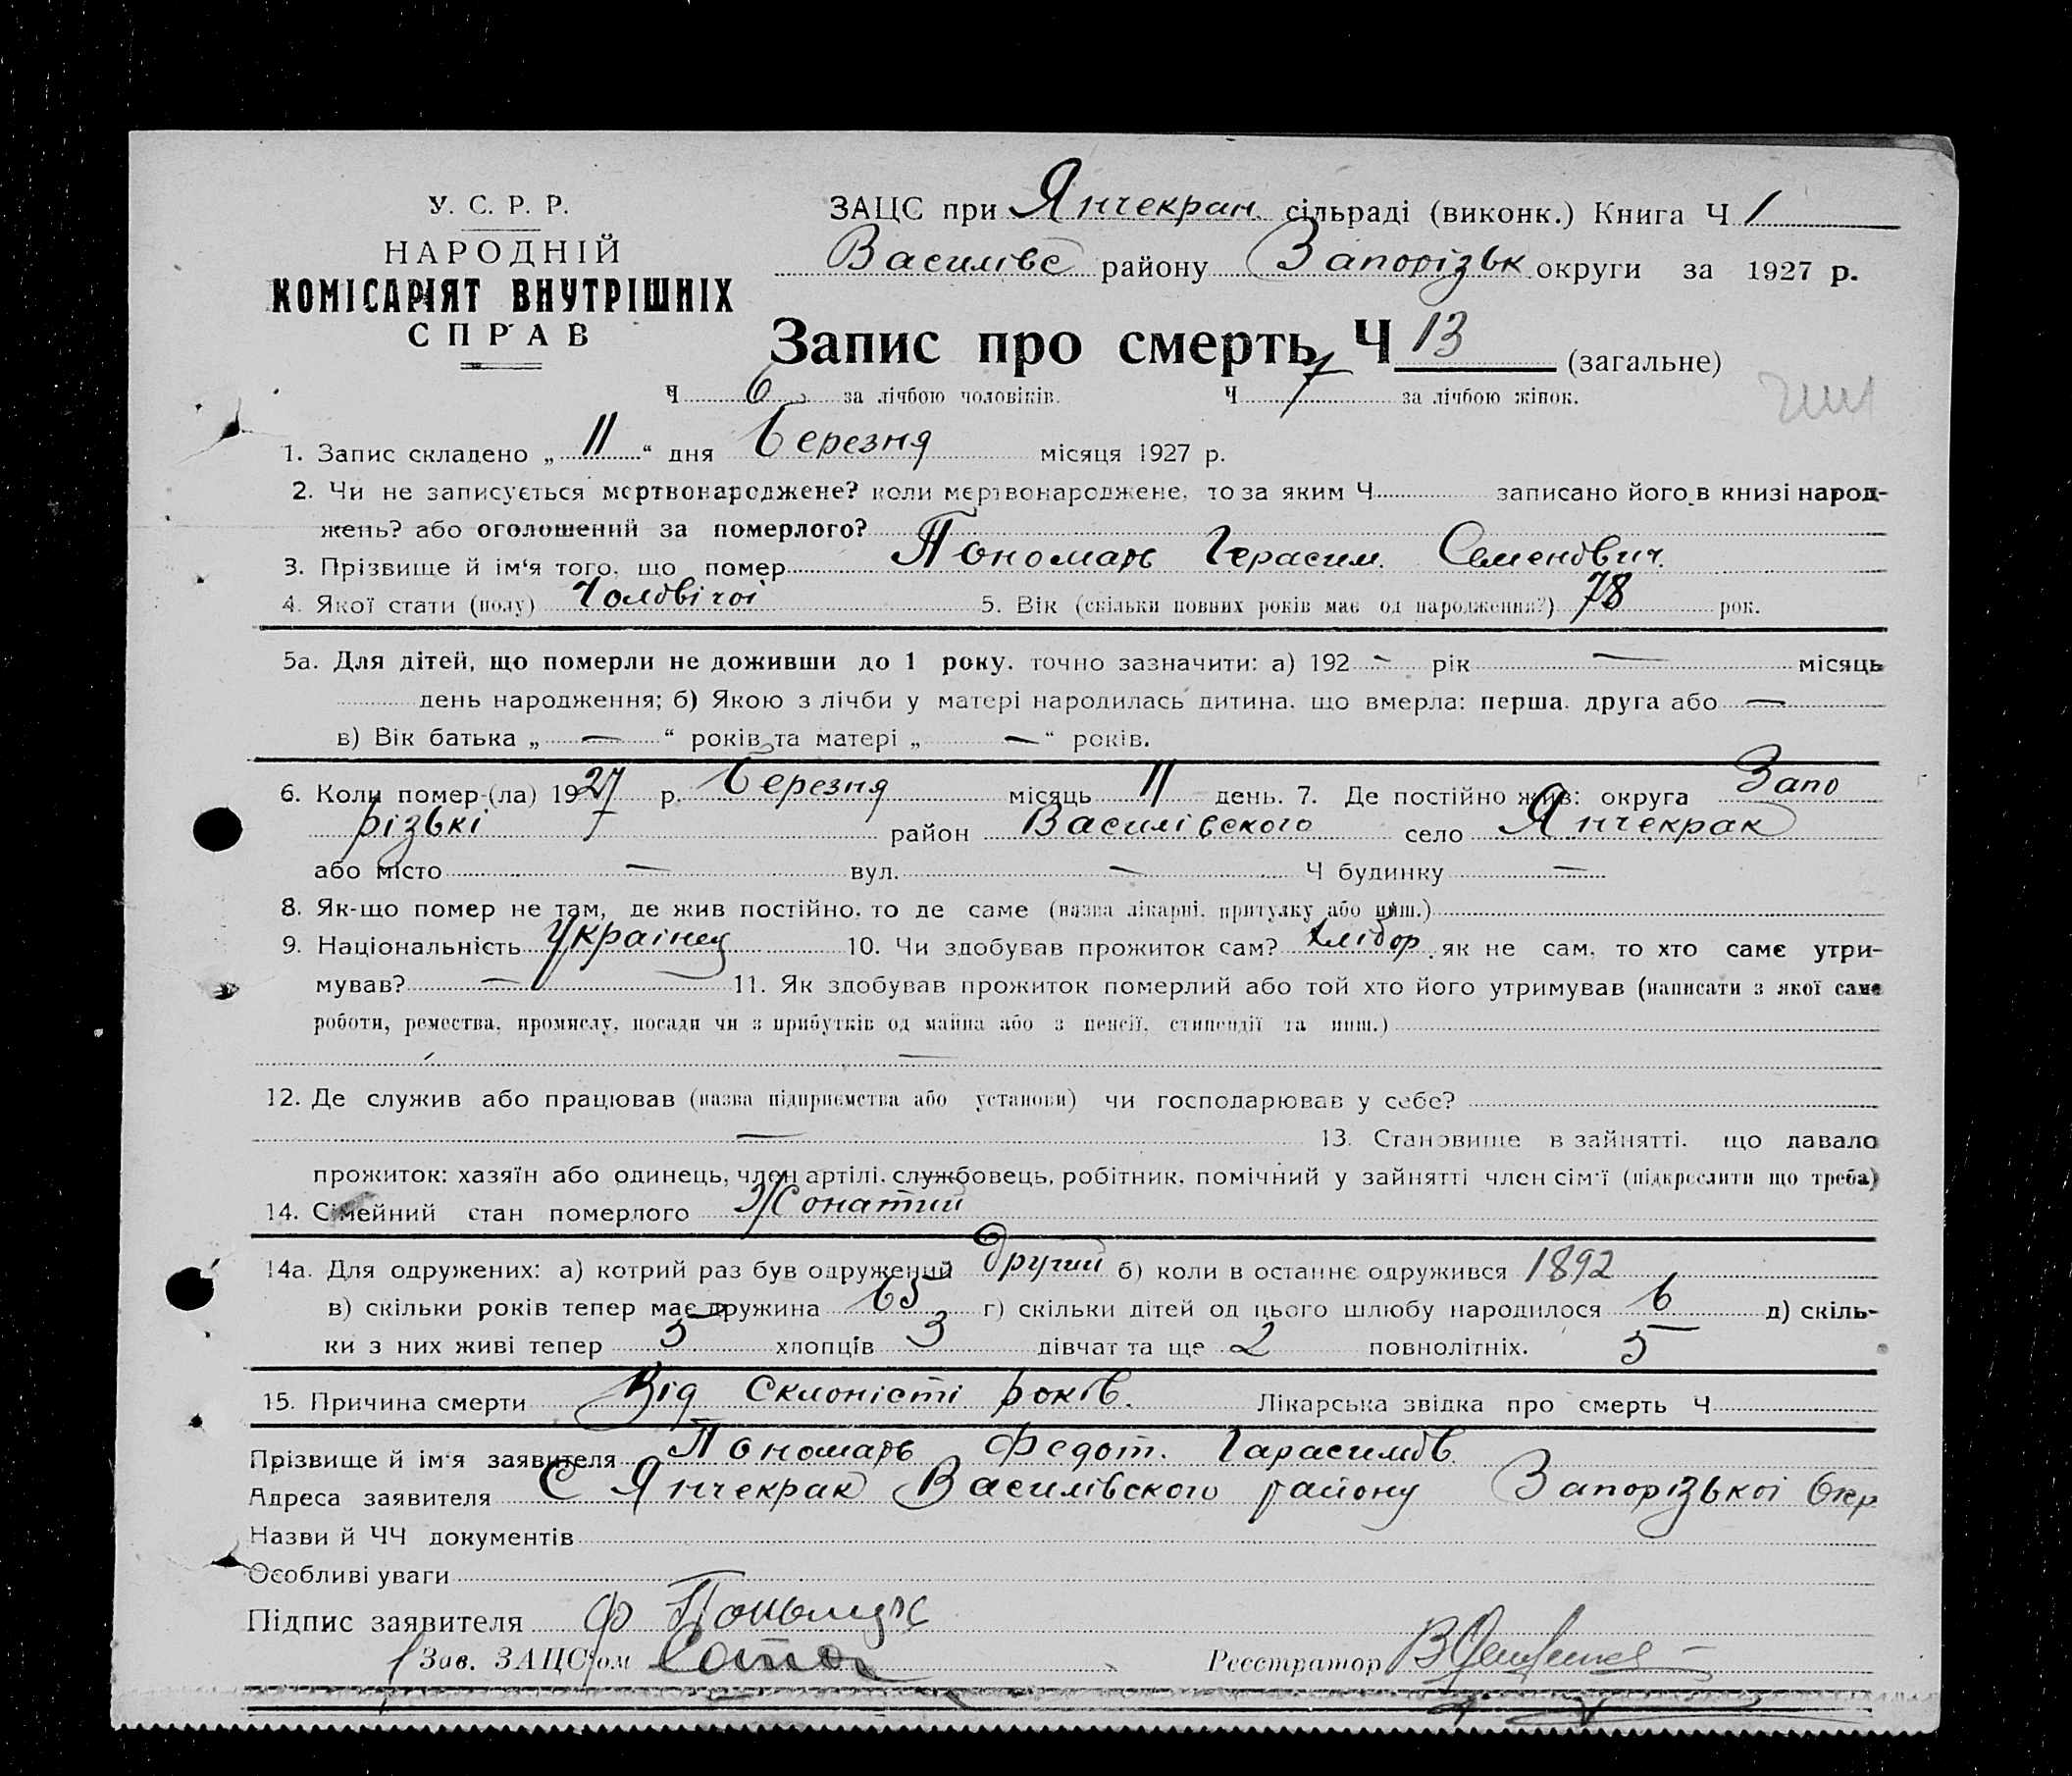 У. С. Р. Р.
НАРОДНІЙ
КОМІСАРІЯТ ВНУТРІШНІХ
СПРАВ
ЗАЦС при Янчекран. сільраді (виконк.) Книга Ч 1
Василівс району Запорізьк округи за 1927 р.
Запис про смерть Ч 13 (загальне)
Ч 6 за лічбою чоловіків. Ч 7 за лічбою жінок.
1. Запис складено „ 11 “ дня Березня місяця 1927 р.
2. Чи не записується мертвонароджене? коли мертвонароджене, то за яким Ч записано його в книзі народ-
жень? або оголошений за померлого?
3. Прізвище й ім‘я того, що помер Пономарь Герасим. Семенович.
4. Якої стати (полу) Чоловічої 5. Вік (скільки повних років має од народження?) 78 рок.
5а. Для дітей, що померли не доживши до 1 року. точно зазначити: а) 192 – рік — місяць
день народження; б) Якою з лічби у матері народилась дитина. що вмерла: перша. друга або —
в) Вік батька „ — “ років та матері „ — “ років.
6. Коли помер-(ла) 1927 р. Березня місяць 11 день. 7. Де постійно жив: округа Запо
різькі район Василівского село Янчекрак
або місто — вул. — Ч будинку —
8. Як-що помер не там, де жив постійно, то де саме (назва лікарні, притулку або инш.)
9. Національність Українец 10. Чи здобував прожиток сам? Хлібор. як не сам, то хто саме утри-
мував? — 11. Як здобував прожиток померлий або той хто його утримував (написати з якої саме
роботи, ремества, промислу, посади чи з прибутків од майна або з пенсії, стипендії та инш.)
—
12. Де служив або працював (назва підприємства або установи) чи господарював у себе?
— 13. Становище в зайнятті. що давало
прожиток: хазяїн або одинець, член артілі, службовець, робітник, помічний у зайнятті член сім‘ї (підкреслити що треба)
14. Сімейний стан померлого Жонатий
14а. Для одружених: а) котрий раз був одружений Другий б) коли в останнє одружився 1892
в) скільки років тепер має дружина 65 г) скільки дітей од цього шлюбу народилося 6 д) скіль-
ки з них живі тепер 5 хлопців 3 дівчат та ще 2 повнолітніх. 5
15. Причина смерти Від Склоністі років. Лікарська звідка про смерть Ч
Прізвище й ім‘я заявителя Пономарь Федот. Гарасимов
Адреса заявителя С Янчекрак Василівского району Запорізької Окр
Назви й ЧЧ документів
Особливі уваги
Підпис заявителя Ф Пономарь
Зав. ЗАЦС‘ом
Реєстратор